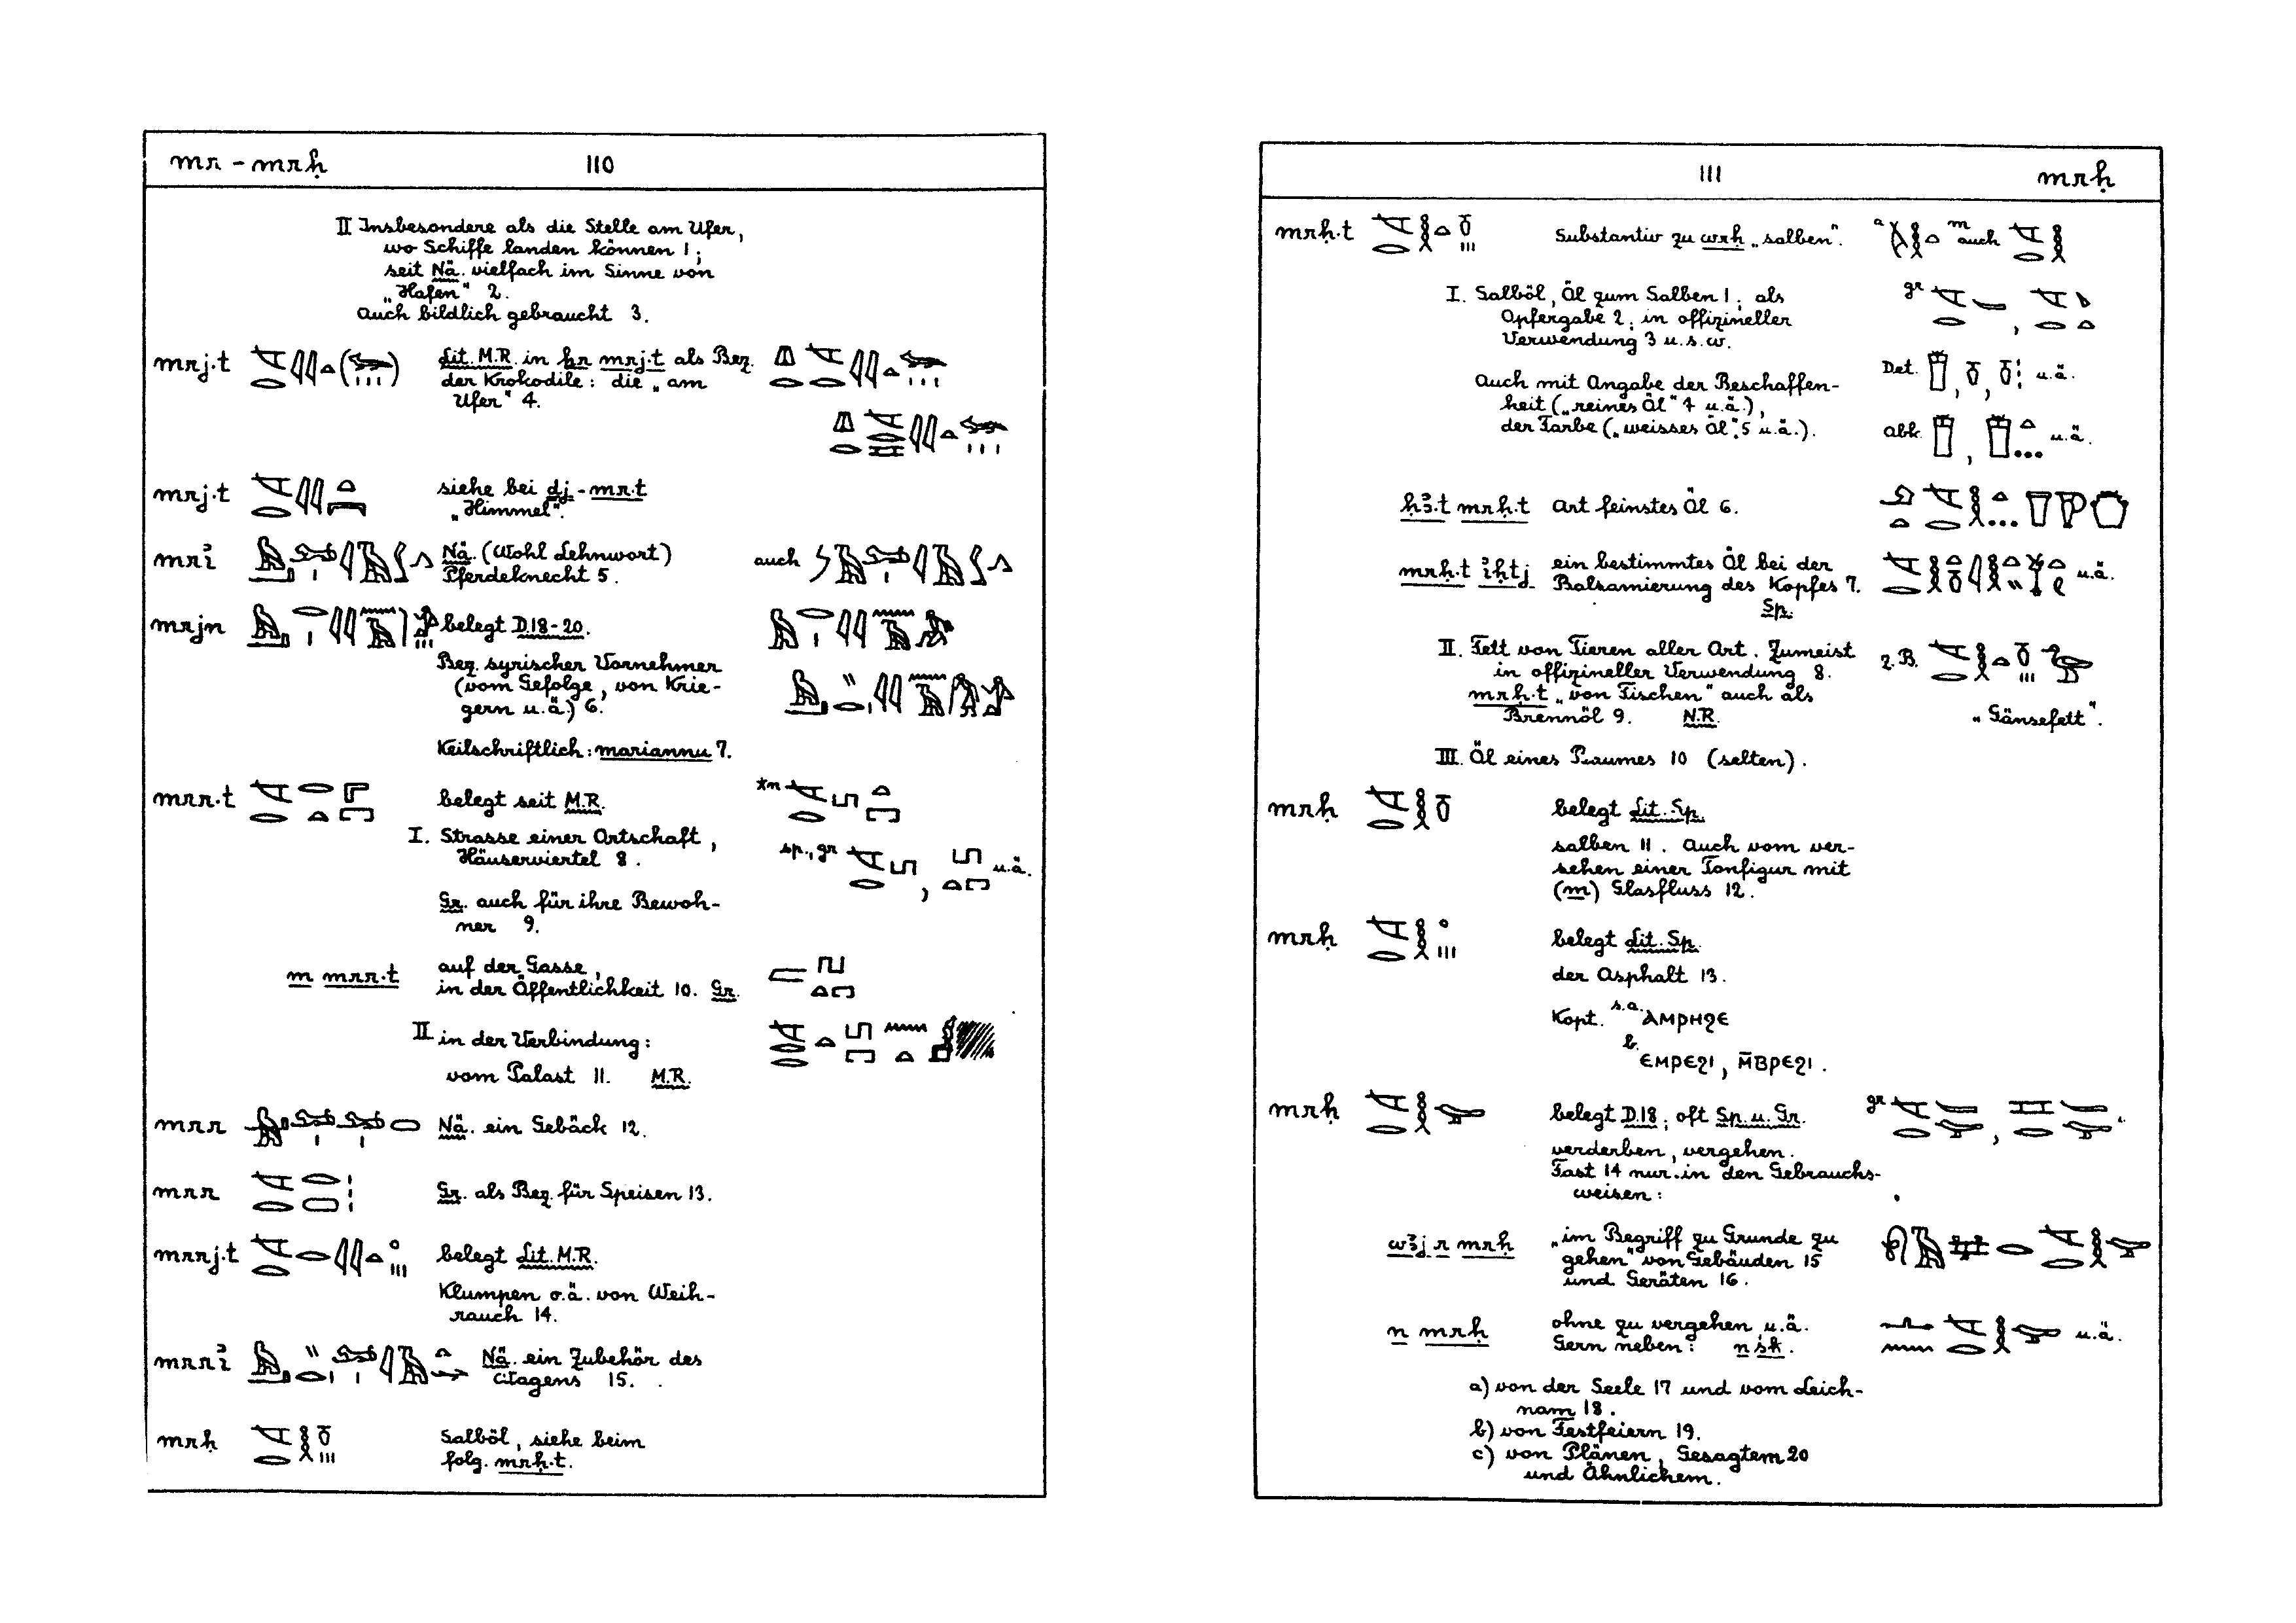 mr - mrḥ 110
II Insbesondere als die Stelle am Ufer,
wo Schiffe landen können 1;
seit Nä. vielfach im Sinne von
„Hafen" 2.
Auch bildlich gebraucht 3.
mrj.t Lit. M.R. in ḥr mrj.t als Bez.
der Krokodile: die „am
Ufer" 4.
mrj.t siehe bei dj - mr.t
„Himmel".
mrꜣı͗ Nä. (Wohl Lehnwort) auch
Pferdeknecht 5.
mrjn belegt D.18-20.
Bez. syrischer Vornehmer
(vom Gefolge, von Krie-
gern u.ä.) 6.
Keilschriftlich: mariannu 7.
mrr.t belegt seit M.R.
I. Strasse einer Ortschaft,
Häuserviertel 8. sp., gr u.ä.
Gr. auch für ihre Bewoh-
ner 9.
m mrr.t auf der Gasse,
in der Öffentlichkeit 10. Gr.
II in der Verbindung:
vom Palast 11. M.R.
mrr Nä. ein Gebäck 12.
mrr Gr. als Bez. für Speisen 13.
mrrj.t belegt Lit. M.R.
Klumpen o.ä. von Weih-
rauch 14.
mrrı͗ Nä. ein Zubehör des
Wagens 15.
mrḥ Salböl, siehe beim
folg. mrḥ.t.
111 mrḥ
mrḥ.t Substantiv zu wrḥ „salben". a m auch
I. Salböl, Öl zum Salben 1; als gr
Opfergabe 2; in offizineller
Verwendung 3 u.s.w.
Det. u.ä.
Auch mit Angabe der Beschaffen-
heit („reines Öl" 4 u.ä.),
der Farbe („weisses Öl" 5 u.ä.). abk. u.ä.
ḥꜣ.t mrḥ.t Art feinstes Öl 6.
mrḥ.t ı͗ḥtj ein bestimmtes Öl bei der
Balsamierung des Kopfes 7. u.ä.
Sp.
II. Fett von Tieren aller Art. Zumeist z.B.
in offizineller Verwendung 8.
mrḥ.t „von Fischen" auch als
Brennöl 9. N.R. „Gänsefett".
III. Öl eines Baumes 10 (selten).
mrḥ belegt Lit. Sp.
salben 11. Auch vom ver-
sehen einer Tonfigur mit
(m) Glasfluss 12.
mrḥ belegt Lit. Sp.
der Asphalt 13.
Kopt. s.a. ⲁⲙⲣⲏϩⲉ
b. ⲉⲙⲣⲉϩⲓ, ⲙ̄ⲃⲣⲉϩⲓ.
mrḥ belegt D.18; oft Sp. u. Gr. gr
verderben, vergehen.
Fast 14 nur in den Gebrauchs-
weisen:
wꜣj r mrḥ „im Begriff zu Grunde zu
gehen" von Gebäuden 15
und Geräten 16.
n mrḥ ohne zu vergehen u.ä. u.ä.
Gern neben: n śk.
a) von der Seele 17 und vom Leich-
nam 18.
b) von Festfeiern 19.
c) von Plänen, Gesagtem 20
und Ähnlichem.